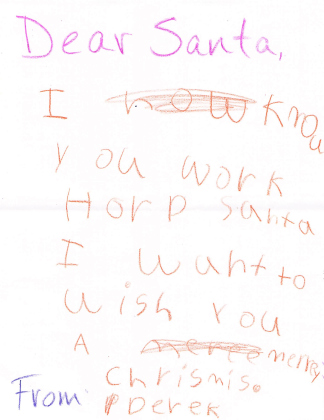 Dear Santa,
I know
you work
Horp santa
I want to
wish you
A merry
chrismis.
From Derek